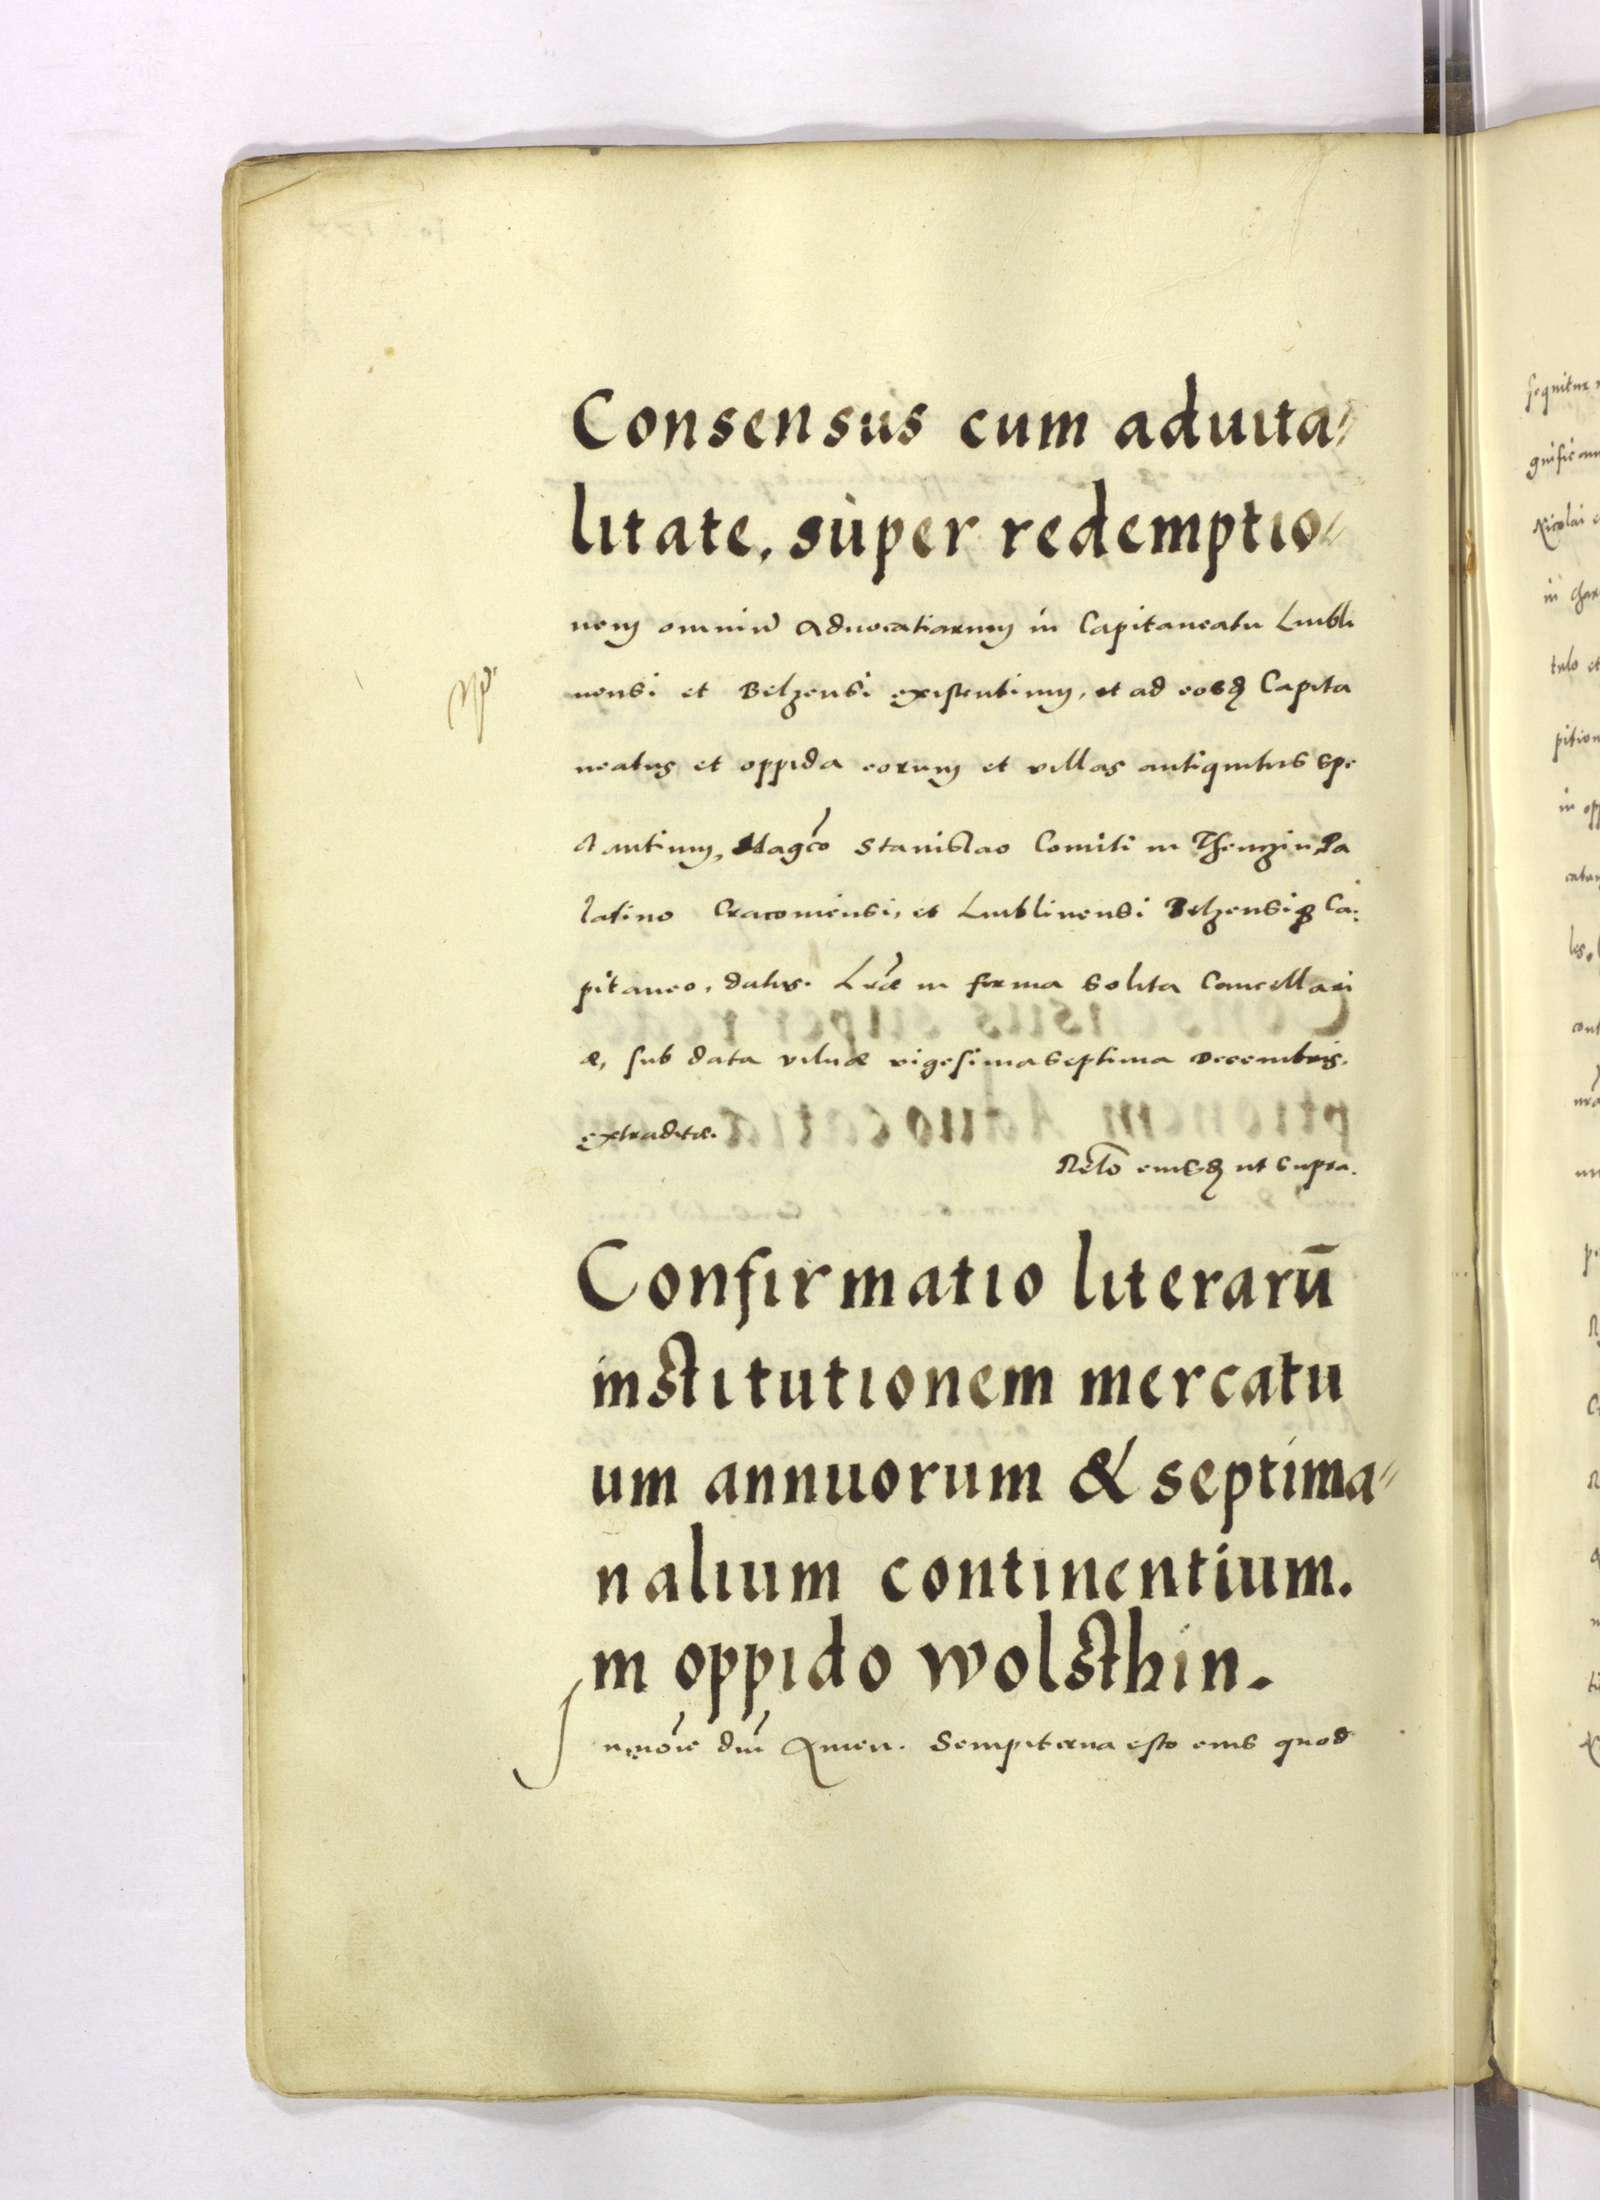 Consensus cum aduita=
litate, super redemptio=
nem omniū Aduocatiarum in Capitaneatu Lubli
nensi et Belzensi existentium, et ad eosdȩ Capita
neatus et oppida eorum et villas antiquitus spe
ctantium, Magco Stanislao Comiti in Thenczin, Pa
latino Cracouiensi, et Lublinensi Belzensiqȝ Ca:
pitaneo, datus. Lræ in forma solita Cancellari
æ, sub data vilnæ vigesimaseptima Decembris.
extraditæ.
Relō eiusdȩ ut supra.
Confirmatio literarū
institutionem mercatu
um annuorum & septima=
nalium continentium.
in oppido wolsthin.
In noīe dnī Amen. Sempiterna esto eius quod